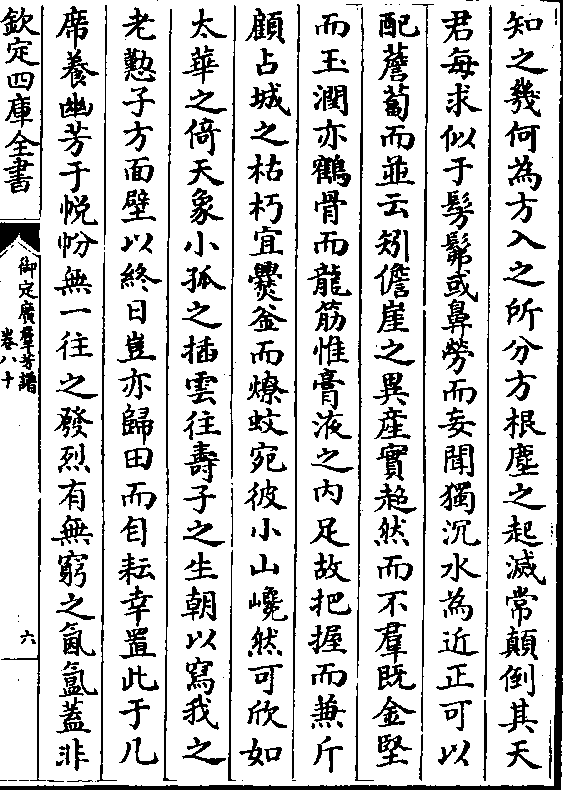 知之幾何為方入之所分方根塵之起滅常顛倒其天
君每求似于髣髴或鼻勞而妄聞獨沉水為近正可以
配薝蔔而並云矧儋崖之異産實超然而不羣既金堅
而玉潤亦鶴骨而龍筋惟膏液之内足故把握而兼斤
顧占城之枯朽宜爨釜而燎蚊宛彼小山巉然可欣如
太華之倚天象小孤之插雲往壽子之生朝以寫我之
老懃子方面壁以終日豈亦歸田而自耘幸置此于几
席養幽芳于帨帉無一往之發烈有無窮之氤氲蓋非
欽定四庫全書
御定廣羣芳譜
卷八十
六